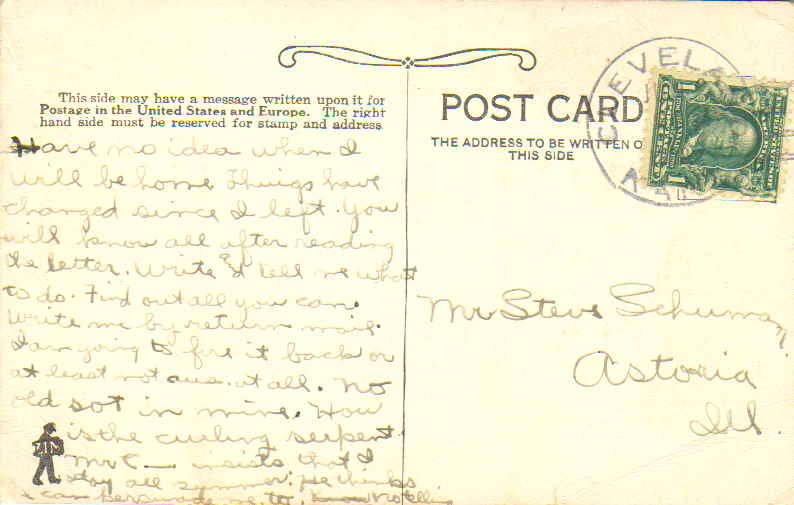 This side may have a message written upon it for
Postage in the United States and Europe. The right
hand side must be reserved for stamp and address
POST CARD
THE ADDRESS TO BE WRITTEN O
THIS SIDE
CLEVELA
Have no idea when I
will be home. Things have
changed since I left. You
will know all after reading
the letter. Write & tell me what
to do. Find out all you can.
Write me by return mail.
I am going to fire it back or
at least not ans. at all. No
old sot in mine. How
is the curling serpent.
Mr C— insists that I
stay all summer. He thinks
can persuade me to. No telling
Mr Steve Schuman
Astoria
Ill.